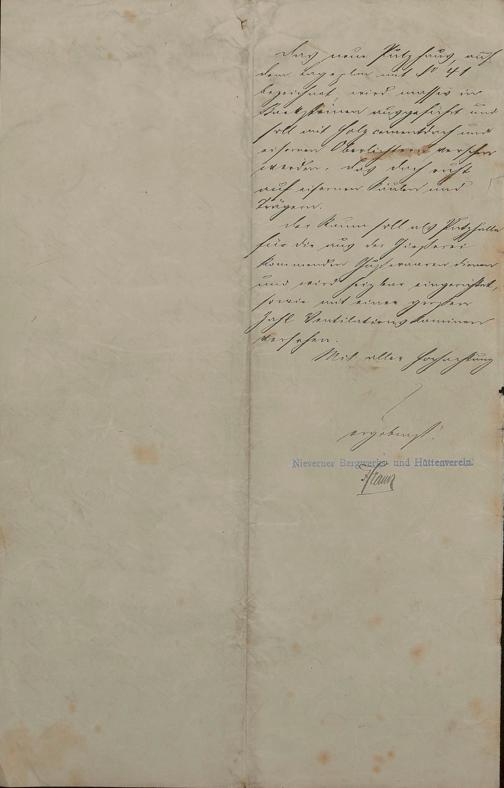 Das neue Putzhaus, auf
dem Lageplan mit No 41
bezeichnet, wird massiv in
Backsteinen ausgeführt und
soll mit Holzcementdach und
eisernen Oberlichtern versehen
werden. Das Dach ruht
auf eisernen Säulen und
Trägern.
Der Raum soll als Putzhalle
für die aus der Giesserei
kommenden Gußwaaren dienen
und wird heizbar eingerichtet,
sowie mit einer grossen
Zahl Ventilationskaminen
versehen.
Mit aller Hochachtung
ergebenst.
Nieverner Bergwerks- und Hüttenverein.